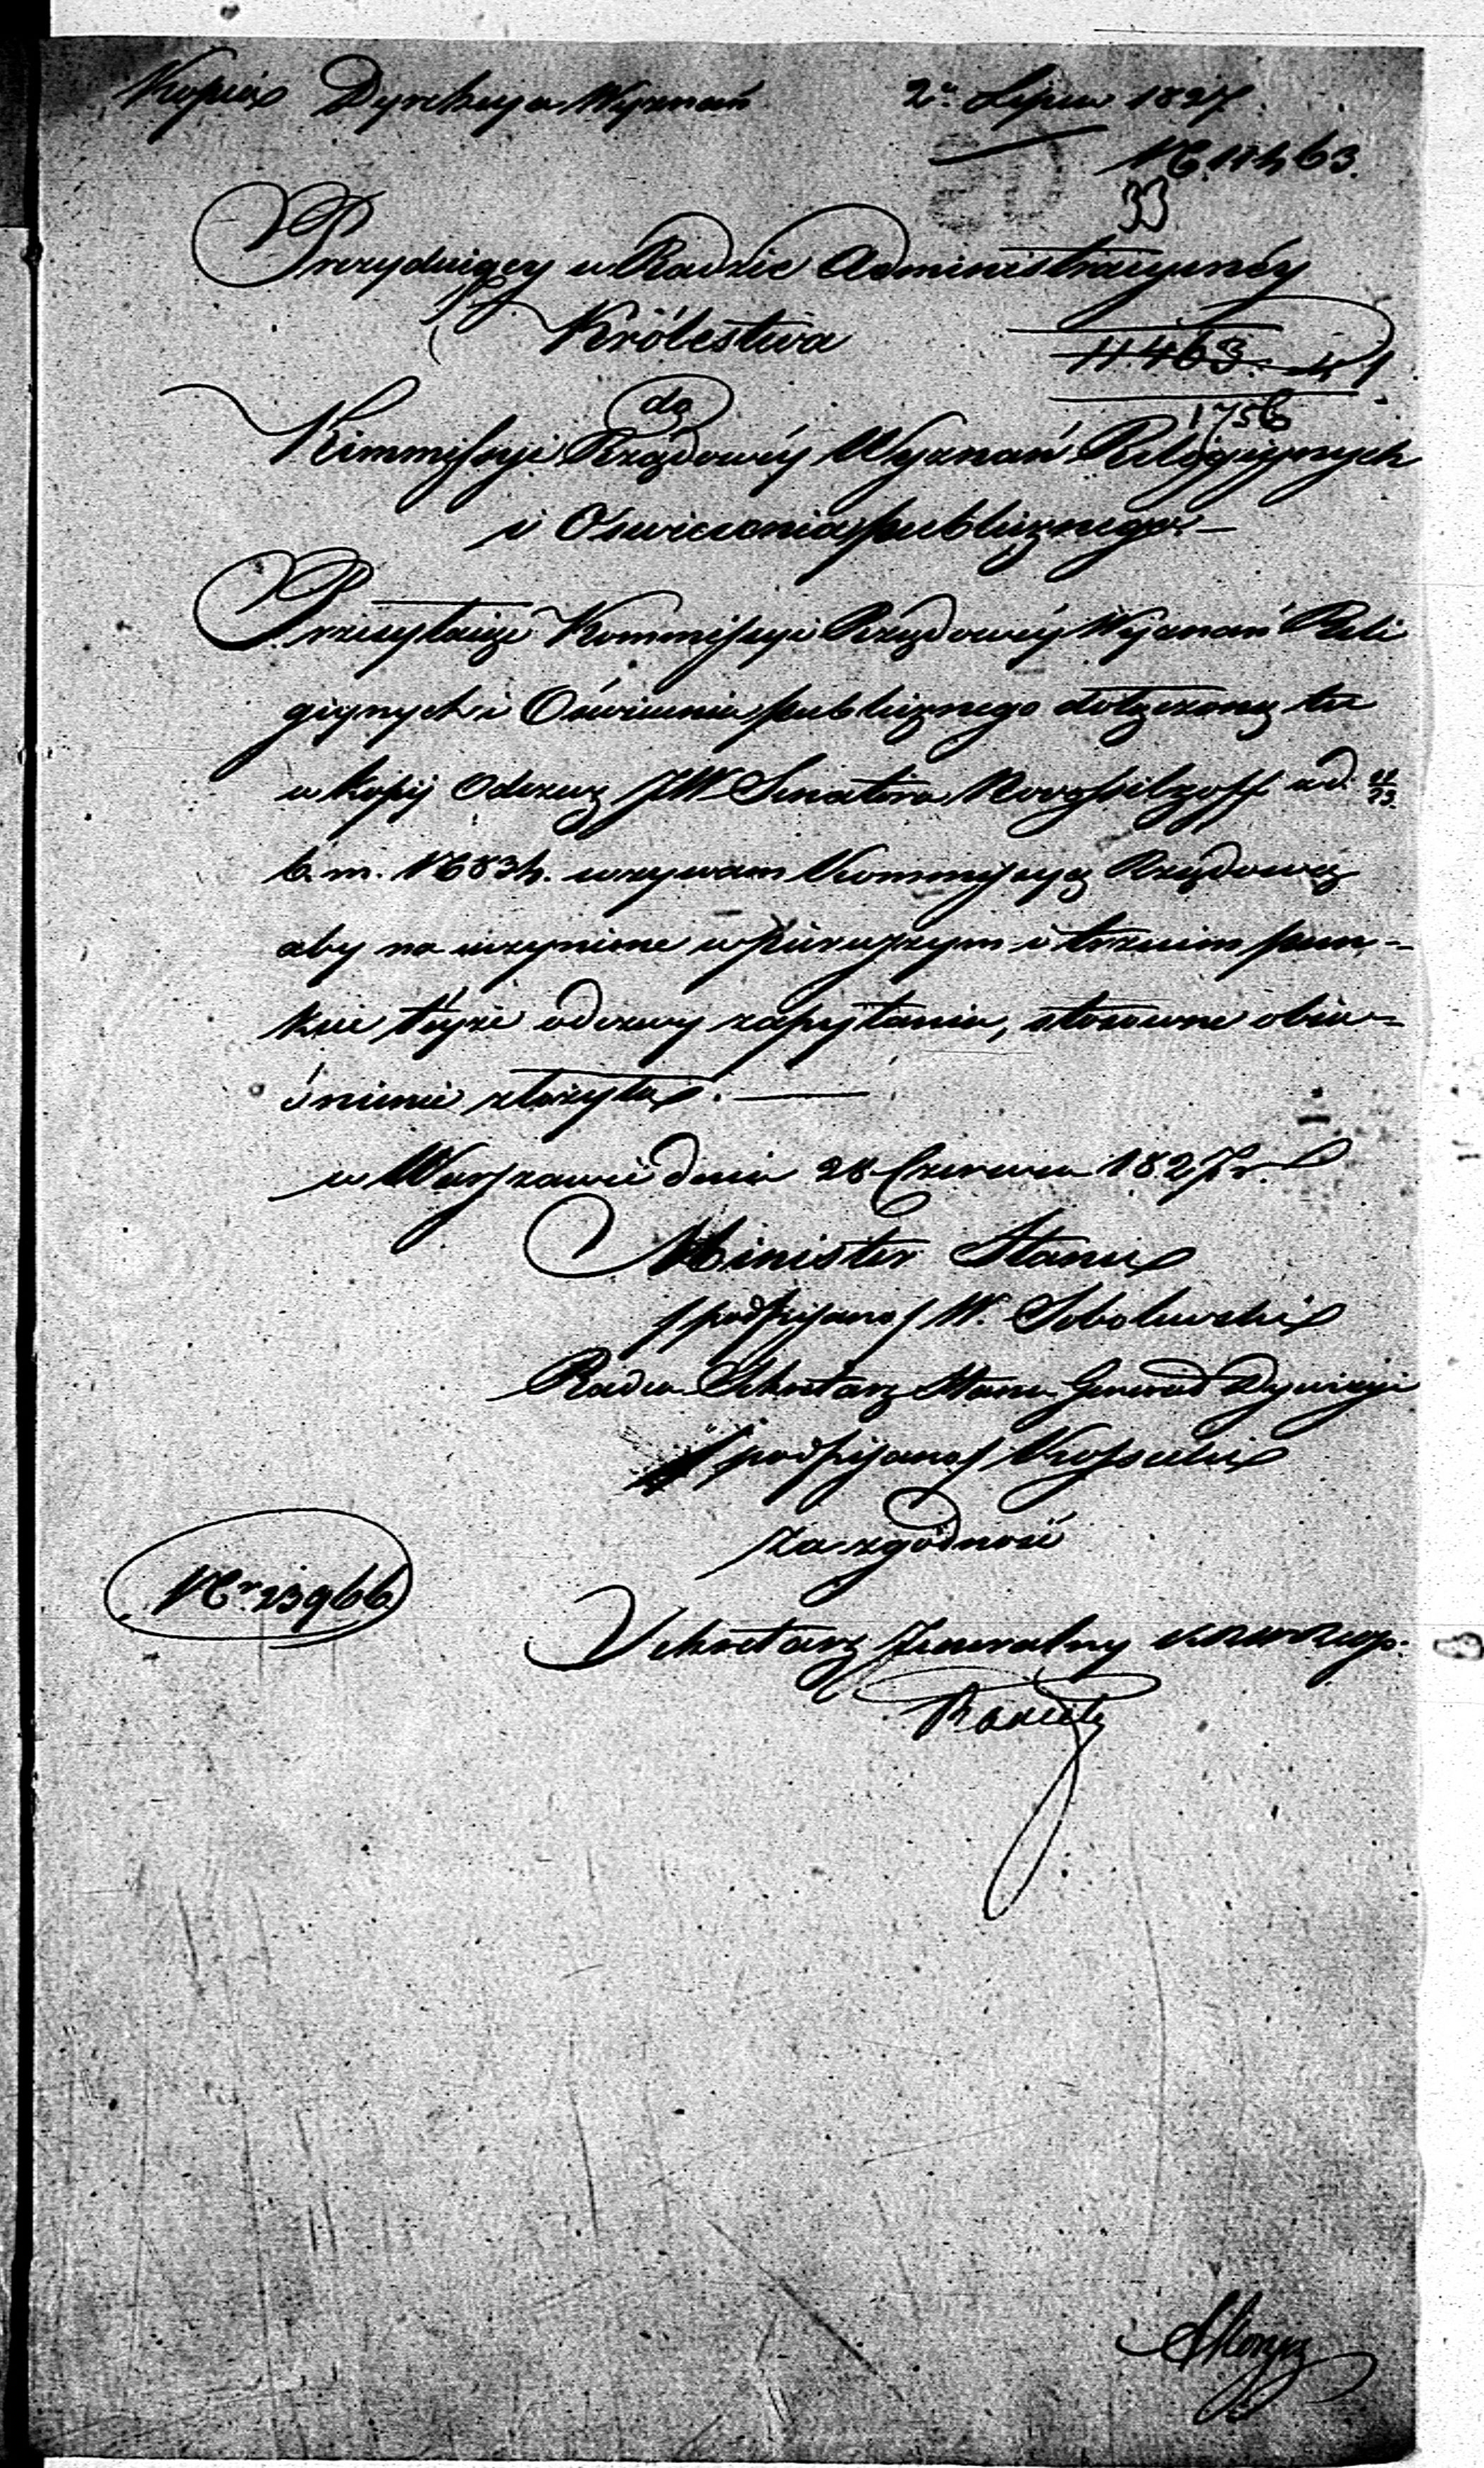 Kopia Dyrekcya Wyznań 2. Lipca 1827.
N. 11463.
33
Prezyduiący w Radzie Administracyinéy
Królestwa
11463.
1756
do
Kommissyi Rządowéy Wyznań Religiynych
i Oświecenia publicznego.—
Przesyłaiąc Kommissyi Rządowéy Wyznań Reli
giynych i Oświecenia publicznego dołączoną tu
w kopij odezwę JW Senatora Nowosilzoff z d. 11/23.
b. m. N 834. wzywam Kommissyą Rządową
aby na uczynione w pierwszym i trzecim pun-
kcie teyże odezwy zapytania, stosowne obia-
śnienie złożyła.—
w Warszawie dnia 28 Czerwca 1827 r.
Minister Stanu
/podpisano/ W. Sobolewski
Radca Sekretarz Stanu Generał Dywizyi
/podpisano/ Kossecki
Za zgodność
Nr. 23966
Sekretarz Jeneralny